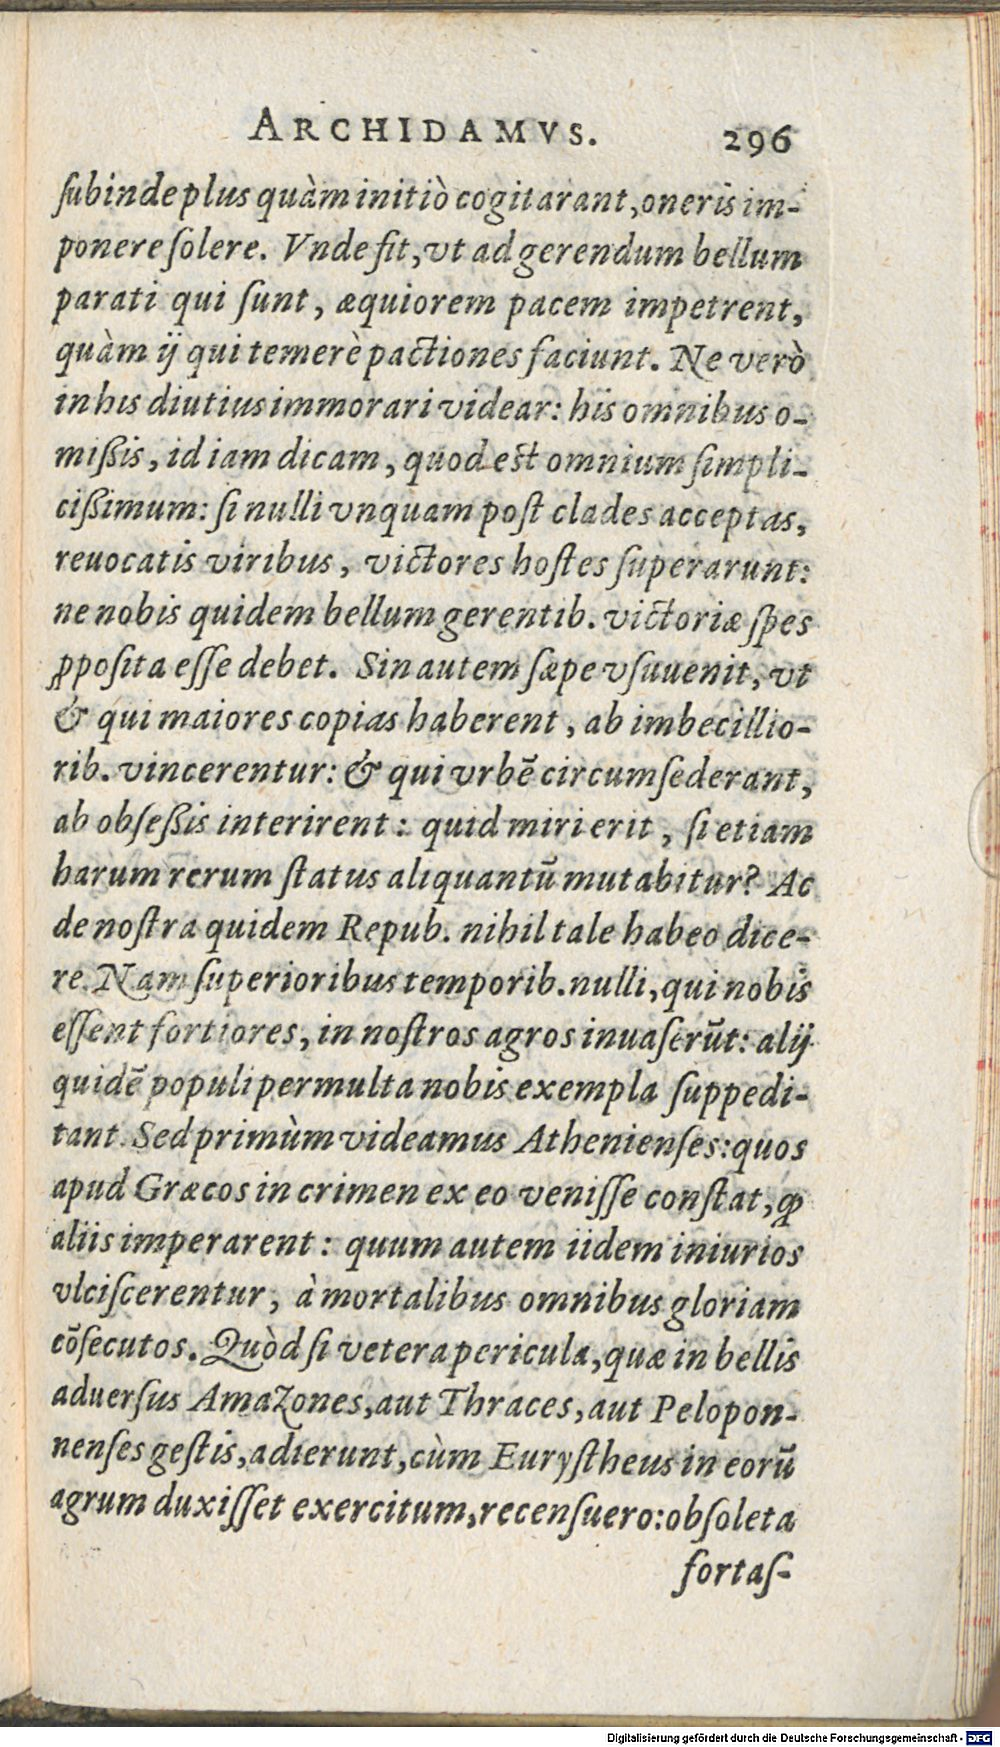 ARCHIDAMVS. 296
ſubinde plus quàm initiò cogitarant, oneris im-
ponere ſolere. Vnde fit, vt ad gerendum bellum
parati qui ſunt, æquiorem pacem impetrent,
quàm ij qui temerè pactiones faciunt. Ne verò
in his diutius immorari videar: his omnibus o-
miſsis, id iam dicam, quod est omnium ſimpli-
ciſsimum: ſi nulli vnquam poſt clades acceptas,
reuocatis viribus, victores hoſtes ſuperarunt:
ne nobis quidem bellum gerentib. victoriæ ſpes
ꝓpoſita eſſe debet. Sin autem ſæpe vſuuenit, vt
& qui maiores copias haberent, ab imbecillio-
rib. vincerentur: & qui vrbē circumſederant,
ab obſeſsis interirent: quid miri erit, ſi etiam
harum rerum ſtatus aliquantū mutabitur? Ac
de noſtra quidem Repub. nihil tale habeo dice-
re. Nam ſuperioribus temporib. nulli, qui nobis
eſſent fortiores, in noſtros agros inuaſerūt: alij
quidē populi permulta nobis exempla ſuppedi-
tant. Sed primùm videamus Athenienſes: quos
apud Græcos in crimen ex eo veniſſe conſtat, ꝙ
aliis imperarent: quum autem iidem iniurios
vlciſcerentur, à mortalibus omnibus gloriam
cōſecutos. Quòd ſi vetera pericula, quæ in bellis
aduerſus Amazones, aut Thraces, aut Pelopon-
nenſes geſtis, adierunt, cùm Euryſtheus in eorū
agrum duxiſſet exercitum, recenſuero: obſoleta
fortaſ-
Digitalisierung gefördert durch die Deutsche Forschungsgemeinschaft - DFG